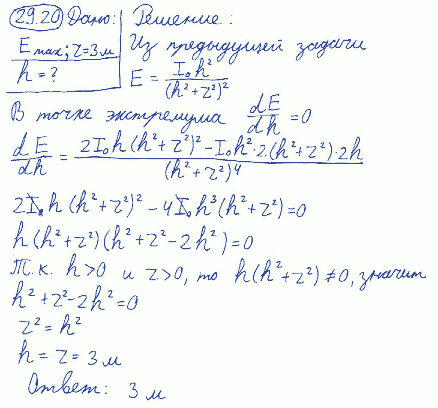 29.20 Дано: Решение:
E max; r = 3 м
h = ?
Из предыдущей задачи
E = I₀h²/(h² + r²)²
В точке экстремума dE/dh = 0
dE/dh = (2I₀h(h² + r²)² − I₀h²·2(h² + r²)·2h)/(h² + r²)⁴
2I₀h(h² + r²)² − 4I₀h³(h² + r²) = 0
h(h² + r²)(h² + r² − 2h²) = 0
Т.к. h > 0 и r > 0, то h(h² + r²) ≠ 0, значит
h² + r² − 2h² = 0
r² = h²
h = r = 3 м
Ответ: 3 м